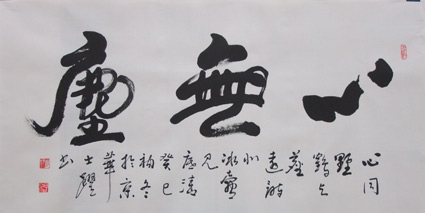 心無塵
心同
野
鶴与
塵
遠詩
似
冰壺
见
底清
癸巳
初冬
於京
華
士耀
书